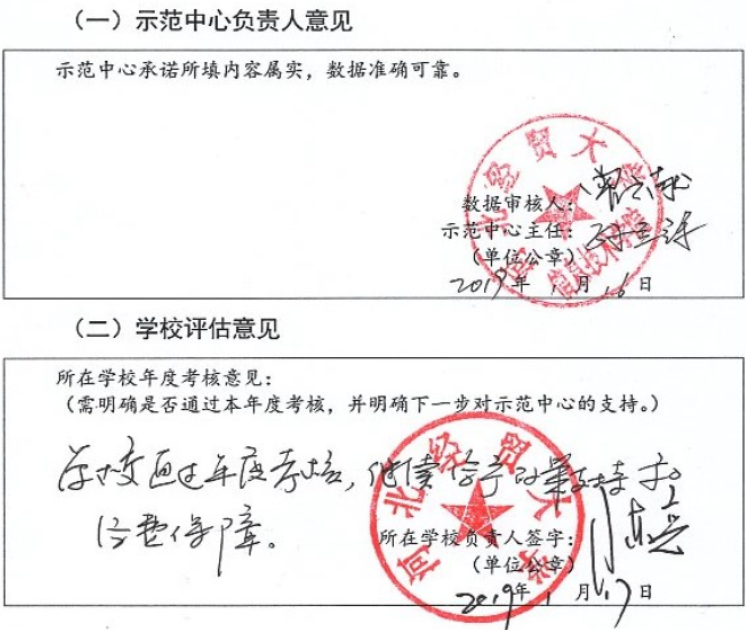 （一）示范中心负责人意见
示范中心承诺所填内容属实，数据准确可靠。
河北经贸大学
信息技术学院
数据审核人：
示范中心主任：
（单位公章）
2019年1月16日
（二）学校评估意见
所在学校年度考核意见：
（需明确是否通过本年度考核，并明确下一步对示范中心的支持。）
学校通过年度考核，继续给予政策支持和
经费保障。
河北经贸大学
所在学校负责人签字：
（单位公章）
2019年1月17日